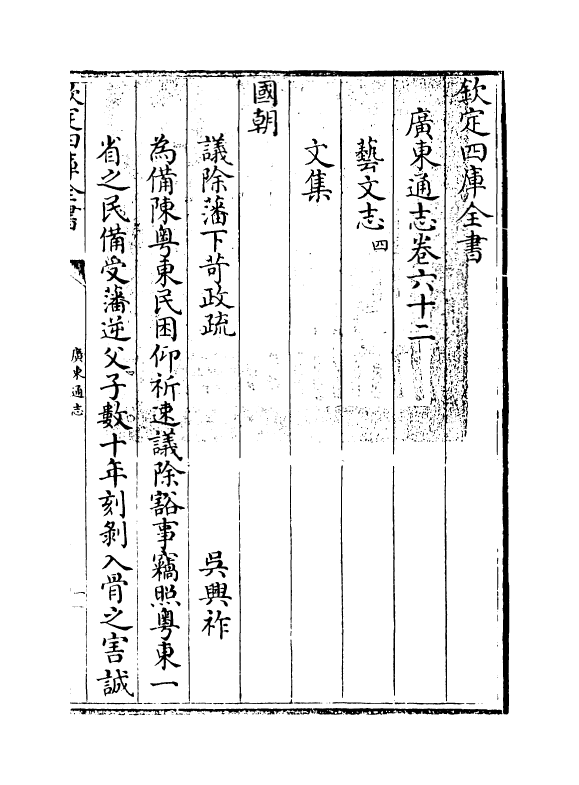 欽定四庫全書
廣東通志卷六十二
藝文志四
文集
國朝
議除藩下苛政疏　吳興祚
為備陳粤東民困仰祈速議除豁事竊照粤東一
省之民備受藩逆父子數十年刻剝入骨之害誠
欽定四庫全書
廣東通志
一